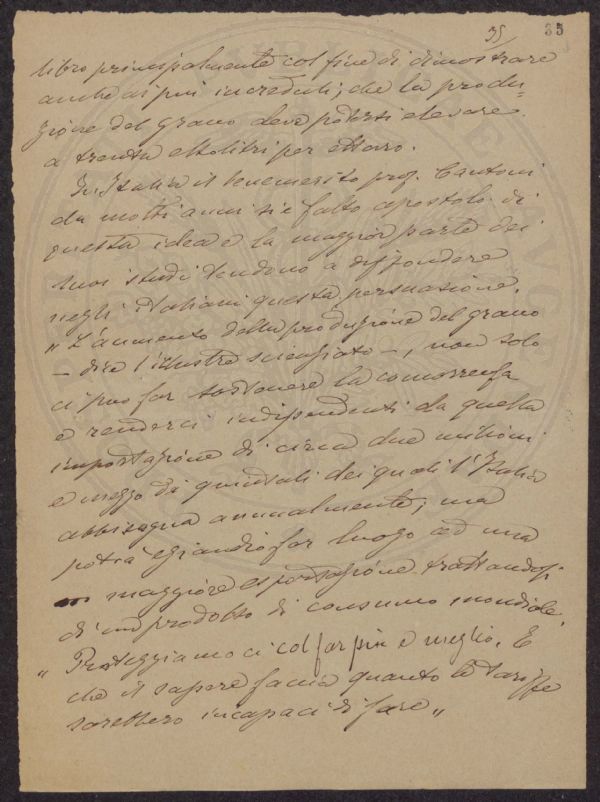 35 35
libro principalmente col fine di dimostrare
anche ai più increduli, che la produ=
zione del grano deve potersi elevare
a trenta ettolitri per ettaro.
In Italia il benemerito prof. Cantoni
da molti anni si è fatto apostolo di
questa idea e la maggior parte dei
suoi studi tendono a diffondere
negli italiani questa persuasione.
"L'aumento della produzione del grano
— dice l'illustre scienziato —, non solo
ci può far sostenere la concorrenza
e renderci indipendenti da quella
importazione di circa due milioni
e mezzo di quintali dei quali l'Italia
abbisogna annualmente; ma
potrà eziandio far luogo ad una
maggiore esportazione trattandosi
di un prodotto di consumo mondiale.
"Proteggiamoci col far più e meglio. E
che il sapere faccia quanto le tariffe
sarebbero incapaci di fare"